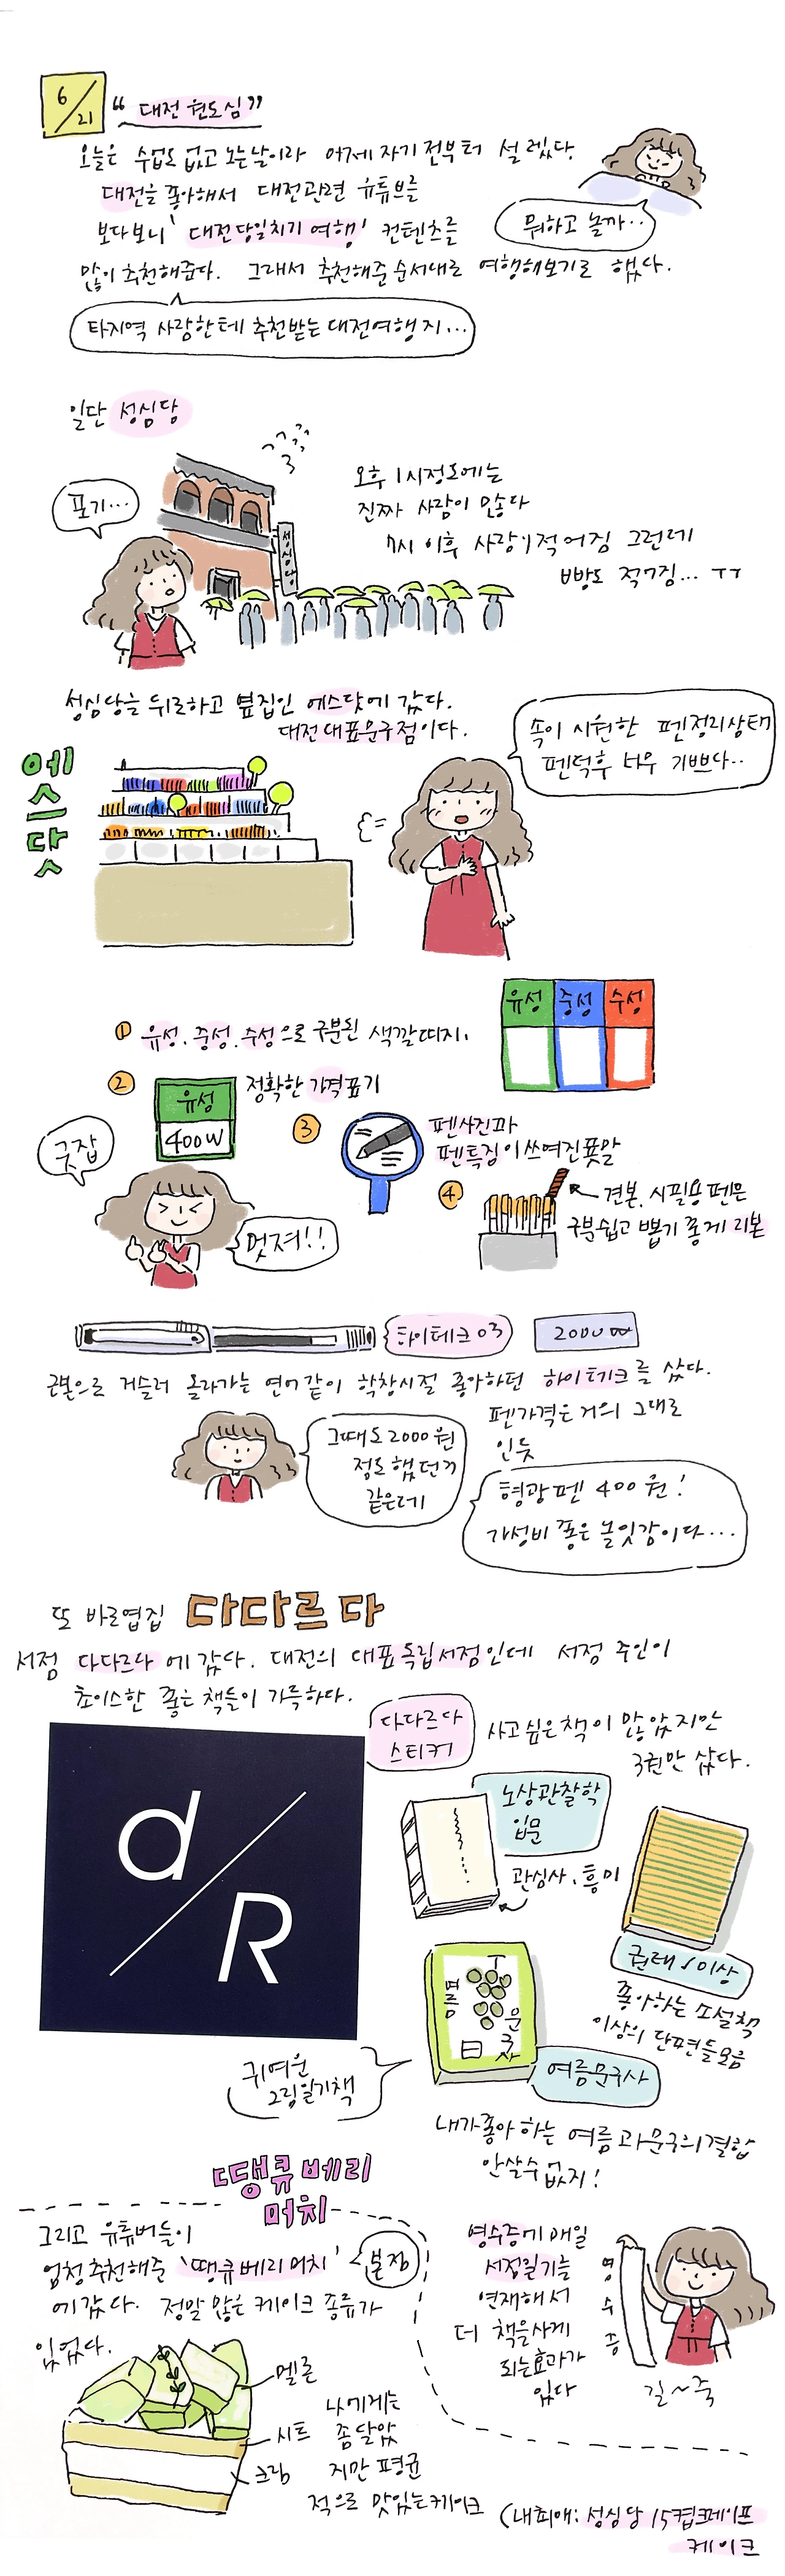 6/21
“대전 원도심”
오늘은 수업도 없고 노는날이라 어제 자기 전부터 설렜다.
대전을 좋아해서 대전관련 유튜브를
보다보니 '대전당일치기 여행' 컨텐츠를
많이 추천해준다. 그래서 추천해준 순서대로 여행해보기로 했다.
뭐하고 놀까..
타지역 사람한테 추천받는 대전여행지...
일단 성심당
포기...
성심당
오후 1시정도에는
진짜 사람이 많다
7시 이후 사람이 적어짐 그런데
빵도 적어짐... ㅜㅜ
성심당을 뒤로하고 옆집인 에스닷에 갔다.
대전대표문구점이다.
에스닷
속이 시원한 펜정리상태
펜덕후 너무 기쁘다..
① 유성. 중성. 수성으로 구분된 색깔띠지.
유성 중성 수성
② 정확한 가격표기
유성
400W
③ 펜사진과
펜특징이쓰여진푯말
굿잡
멋져!!
④ 견본, 시필용펜은
구분쉽고 뽑기 좋게 리본
하이테크 03
2000₩
근본으로 거슬러 올라가는 연어같이 학창시절 좋아하던 하이테크를 샀다.
펜가격은 거의 그대로
인듯
그때도 2000원
정도 했던거
같은데
형광펜 400원!
가성비 좋은 놀잇감이다...
또 바로옆집 다다르다
서점 다다르다에 갔다. 대전의 대표독립서점인데 서점 주인이
초이스한 좋은 책들이 가득하다.
다다르다
스티커
d/R
사고싶은책이 많았지만
3권만 샀다.
노상관찰학
입문
관심사, 흥미
권태 / 이상
좋아하는 소설책
이상의 단편들모음
여름문구사
귀여운
그림일기책
여름문구사
내가좋아하는 여름과문구의결합
안살수없지!
땡큐베리
머치
그리고 유튜버들이
엄청추천해준 '땡큐베리머치' 본점
에갔다. 정말 많은 케이크 종류가
있었다.
멜론
시트
크림
나에게는
좀 달았
지만 평균
적으로 맛있는케이크
영수증에 매일
서점일기를
연재해서
더 책을사게
되는효과가
있다
영수증
길~쭉
(내최애: 성심당 15겹크레이프
케이크